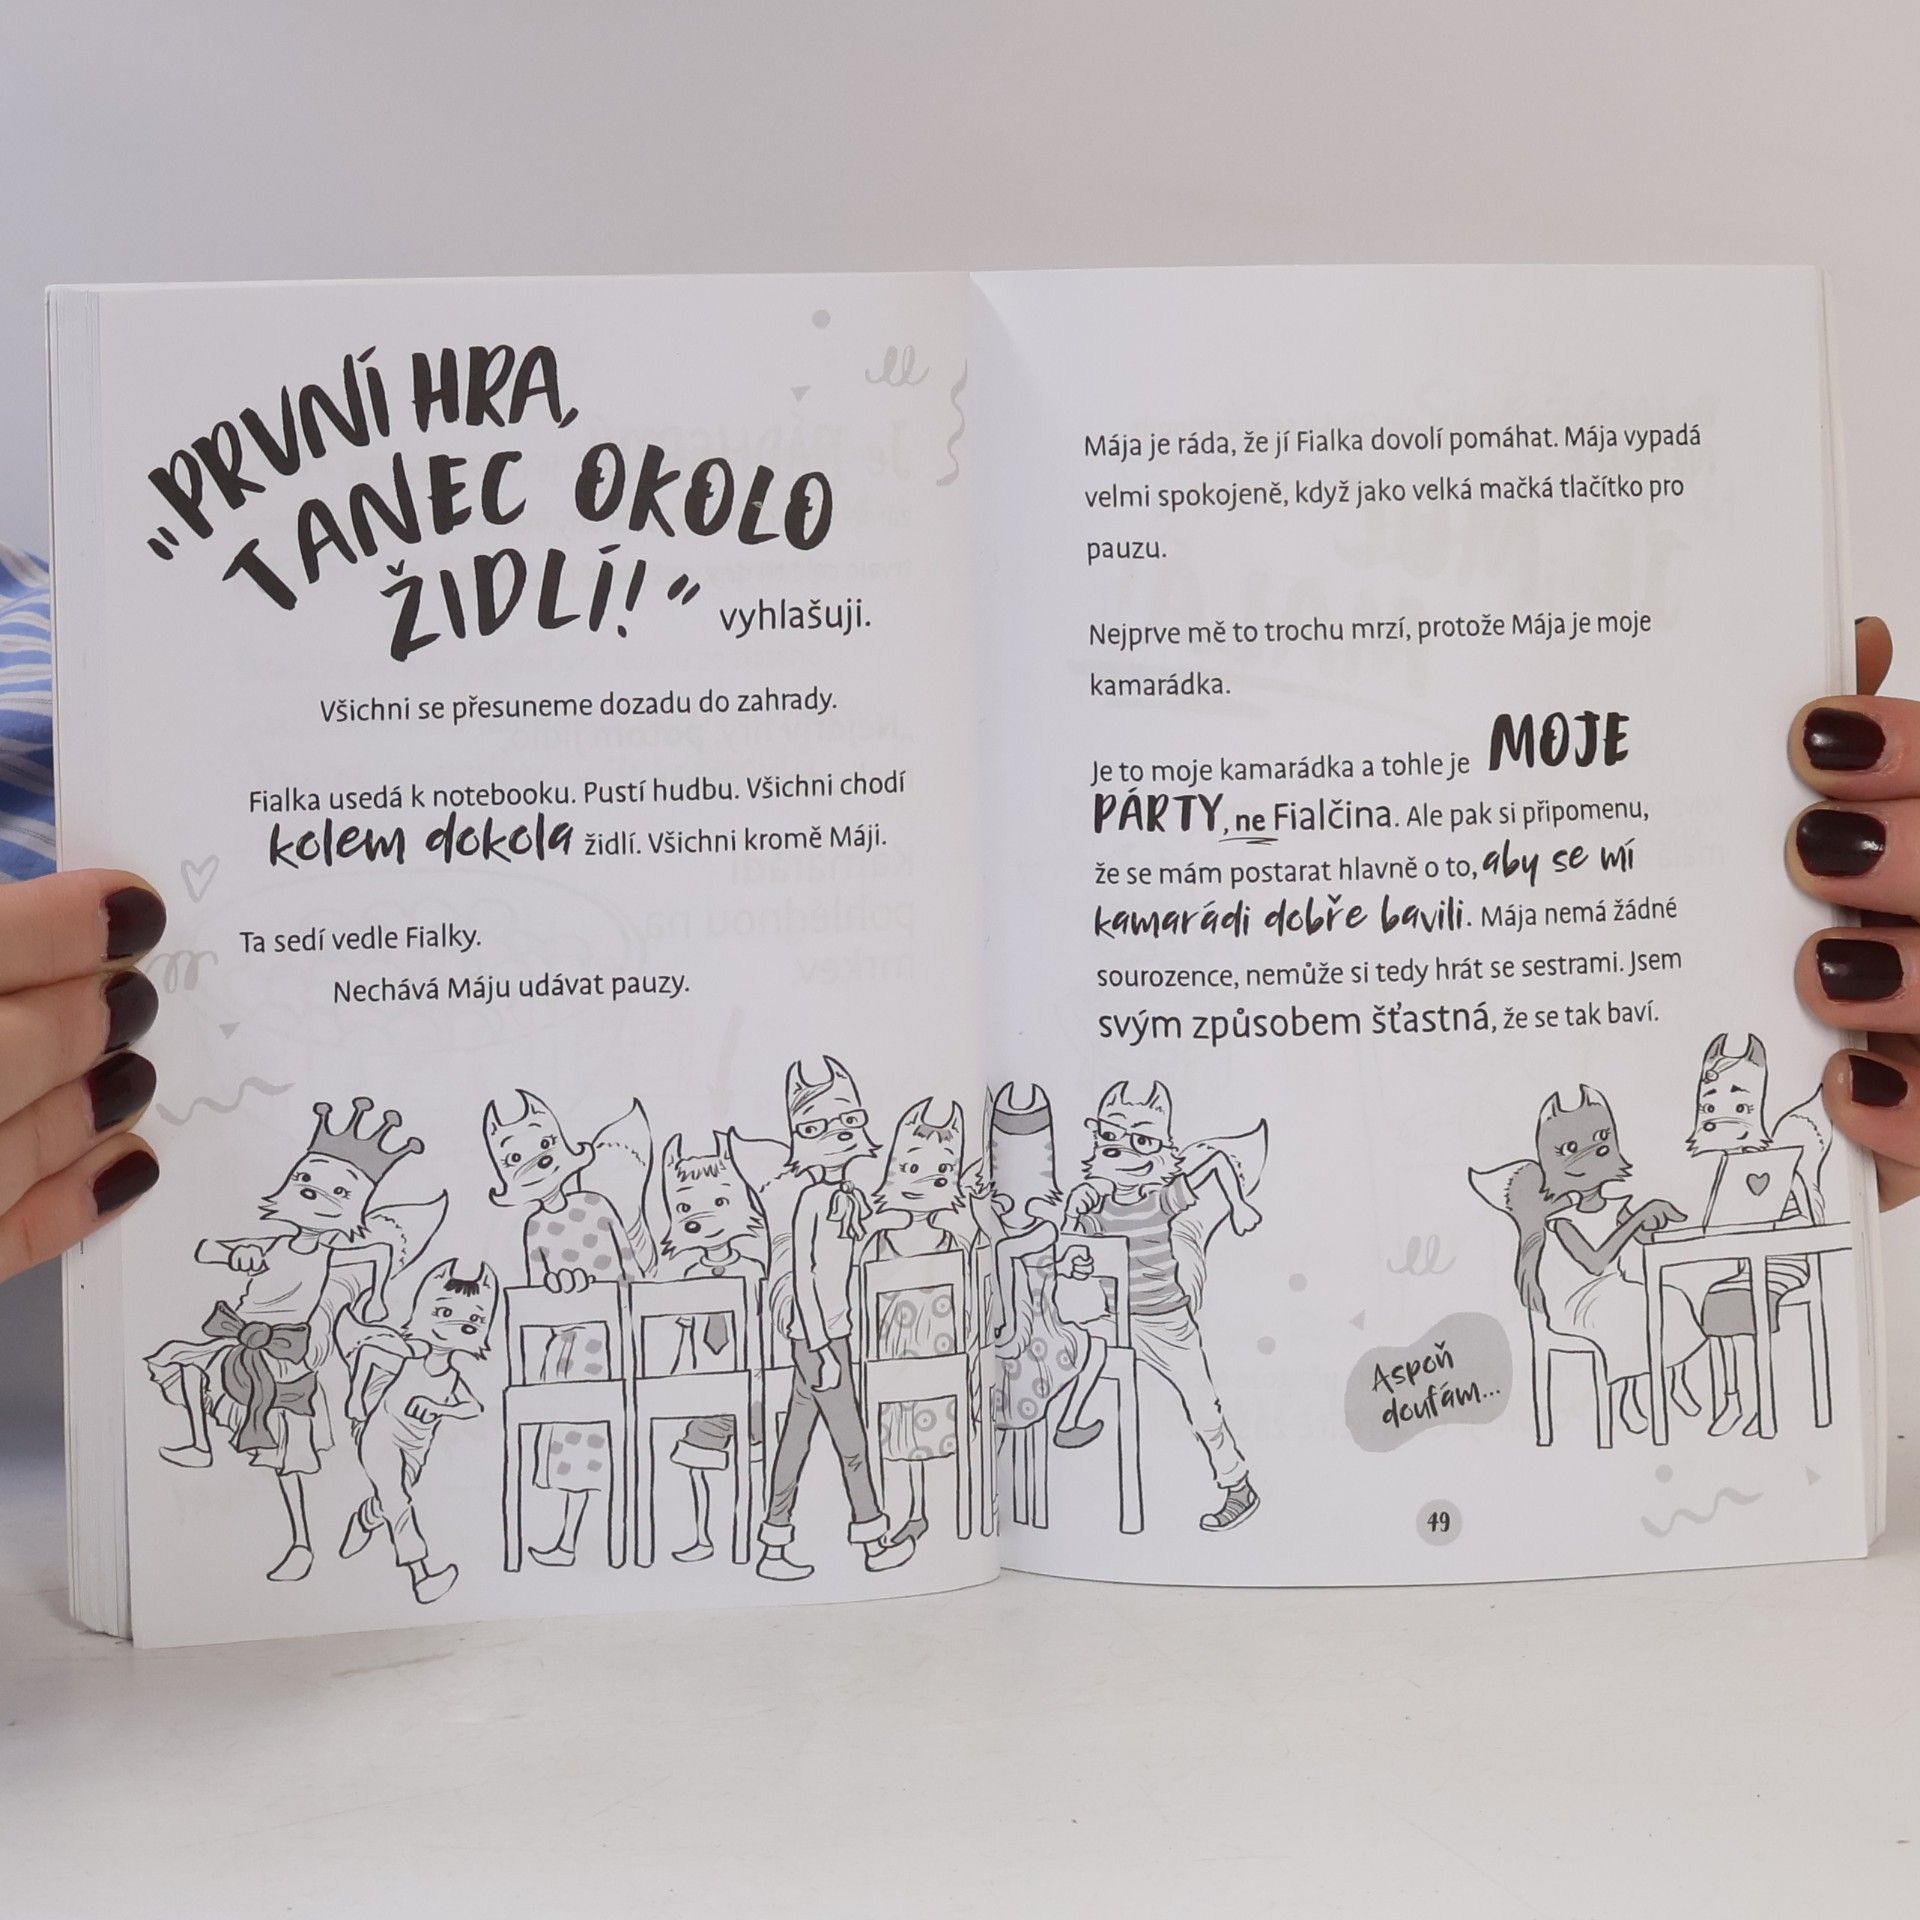 „PRVNÍ HRA,
TANEC OKOLO
ŽIDLÍ!“ vyhlašuji.
Všichni se přesuneme dozadu do zahrady.
Fialka usedá k notebooku. Pustí hudbu. Všichni chodí
kolem dokola židlí. Všichni kromě Máji.
Ta sedí vedle Fialky.
Nechává Máju udávat pauzy.
Mája je ráda, že jí Fialka dovolí pomáhat. Mája vypadá
velmi spokojeně, když jako velká mačká tlačítko pro
pauzu.
Nejprve mě to trochu mrzí, protože Mája je moje
kamarádka.
Je to moje kamarádka a tohle je MOJE
PÁRTY, ne Fialčina. Ale pak si připomenu,
že se mám postarat hlavně o to, aby se mí
kamarádi dobře bavili. Mája nemá žádné
sourozence, nemůže si tedy hrát se sestrami. Jsem
svým způsobem šťastná, že se tak baví.
Aspoň
doufám...
49